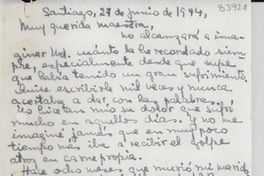 83921
Santiago, 27 de junio de 1944,
Muy querida maestra,
no alcanzará a ima-
ginar Ud. cuánto la he recordado siem-
pre, especialmente desde que supe
que había tenido un gran sufrimiento.
Quise escribirle mil veces y nunca
acertaba a dar con las palabras.
mucho en aquellos días. y no me
imaginé jamás que en muy poco
tiempo más iba a recibir el golpe
atroz en carne propia.
Hace ocho meses que murió mi marido